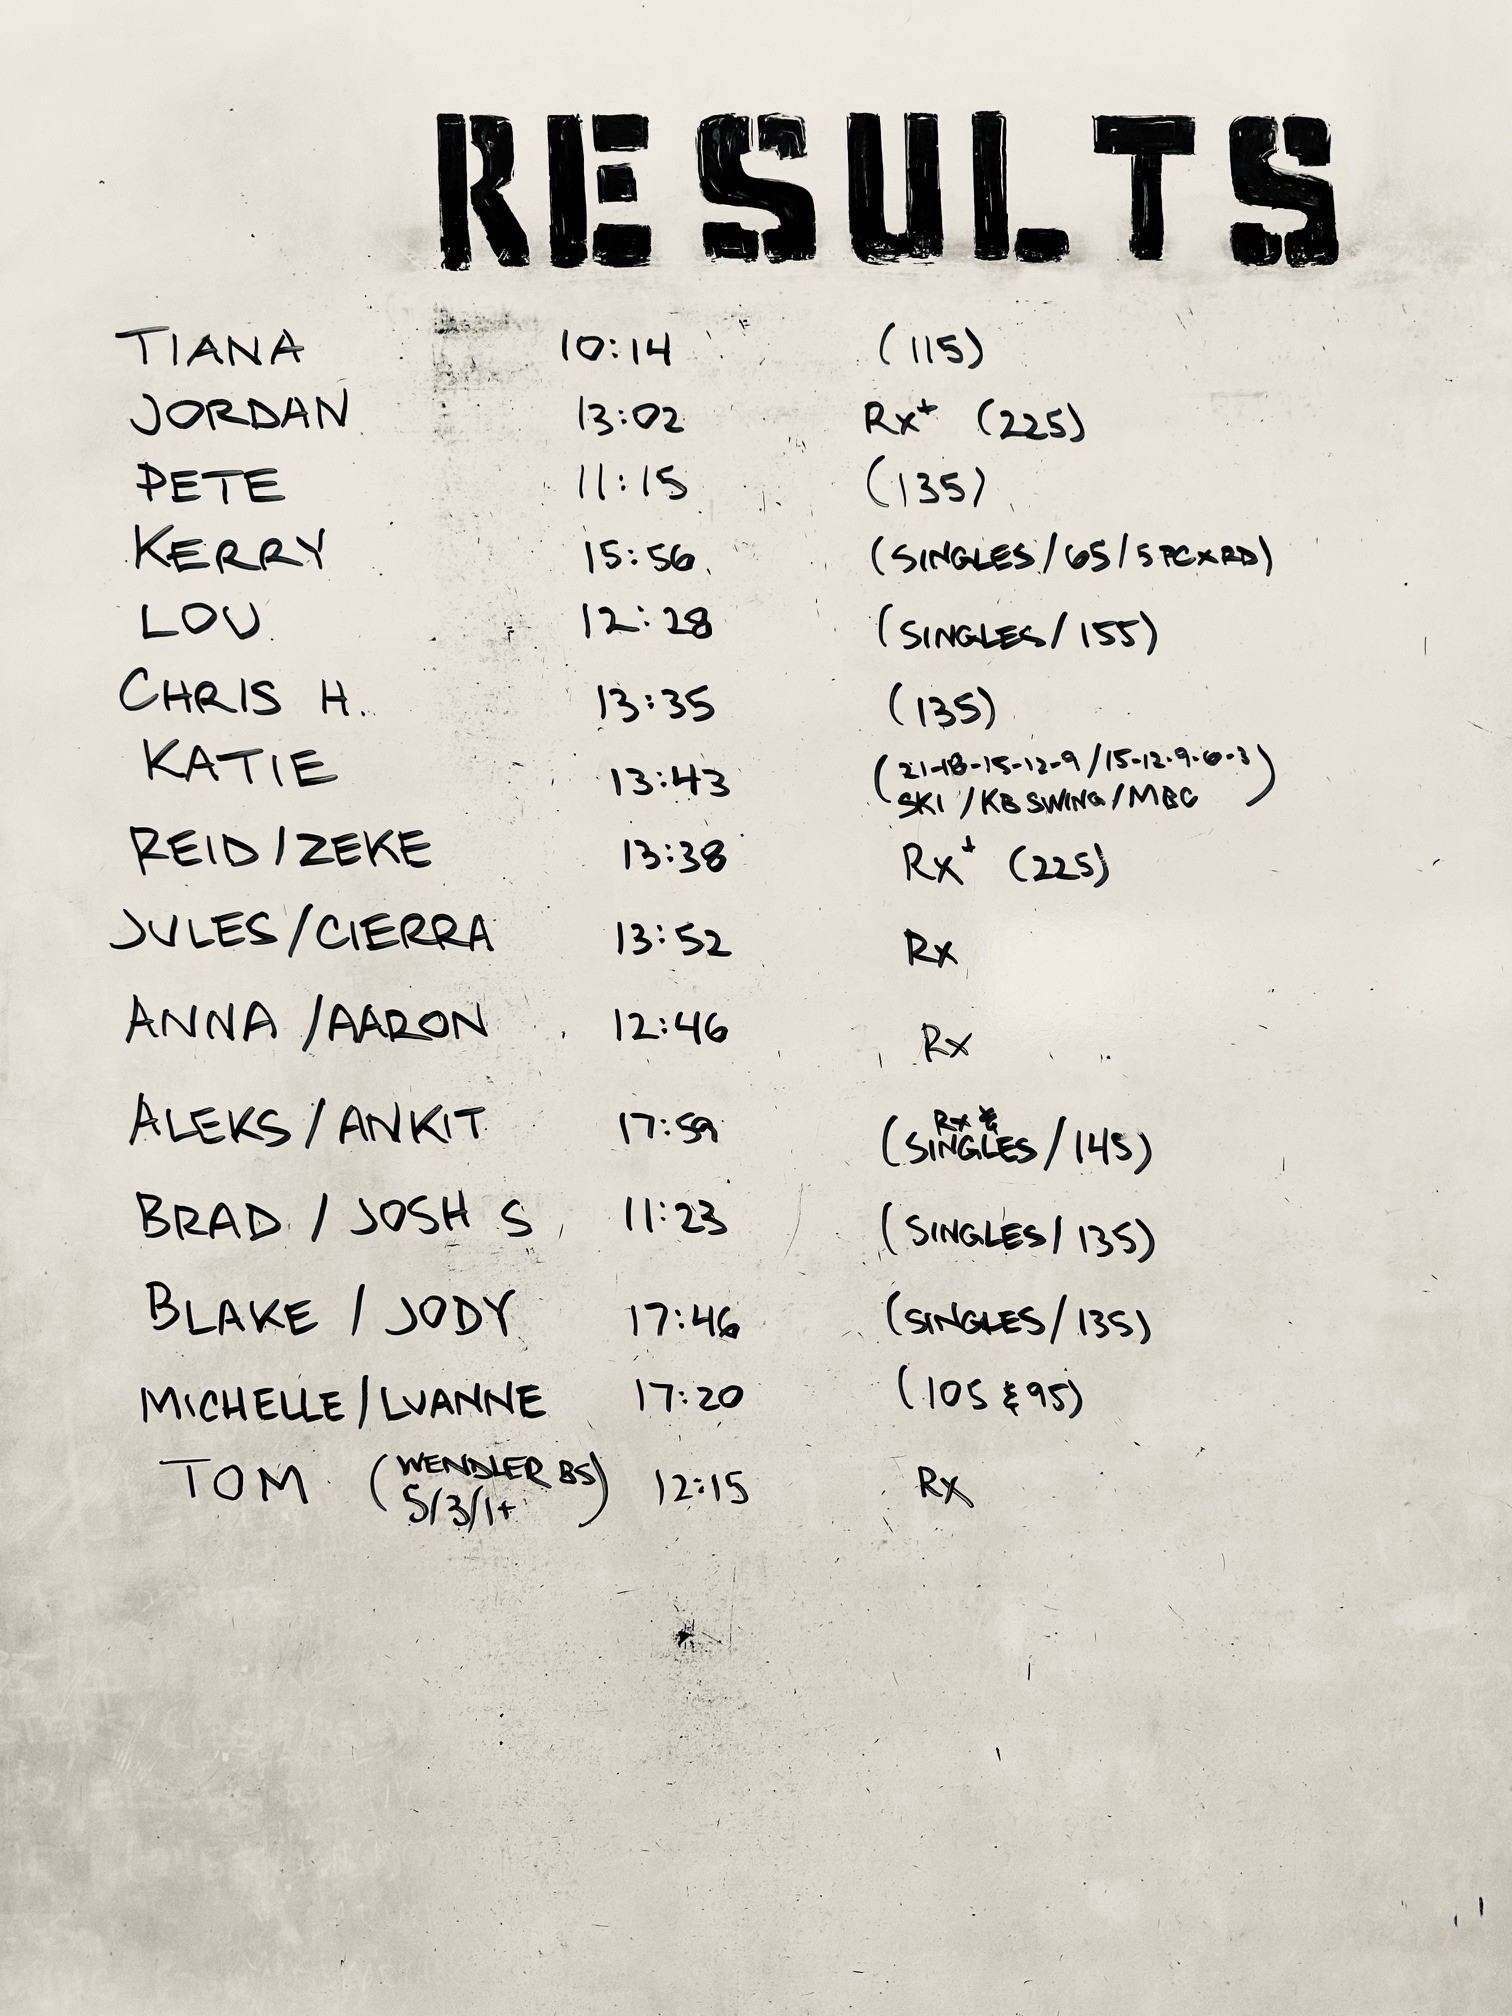 RESULTS
TIANA 10:14 (115)
JORDAN 13:02 Rx+ (225)
PETE 11:15 (135)
KERRY 15:56 (SINGLES/65/5 PCxRD)
LOU 12:28 (SINGLES/155)
CHRIS H. 13:35 (135)
KATIE 13:43 (21-18-15-12-9/15-12-9-6-3
SKI/KB SWING/MBC)
REID/ZEKE 13:38 Rx+ (225)
JULES/CIERRA 13:52 Rx
ANNA/AARON 12:46 Rx
ALEKS/ANKIT 17:59 (Rx &
SINGLES/145)
BRAD/JOSH S 11:23 (SINGLES/135)
BLAKE/JODY 17:46 (SINGLES/135)
MICHELLE/LUANNE 17:20 (105 & 95)
TOM (WENDLER BS
5/3/1+) 12:15 Rx